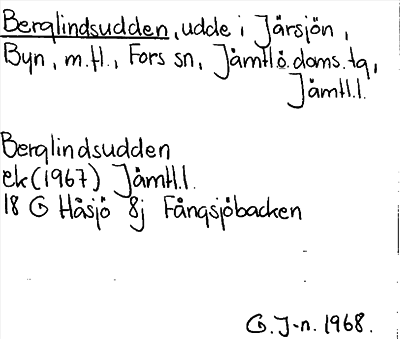 Berglindsudden, udde i Jårsjön,
Byn, m.fl., Fors sn, Jämtl.ö.doms.tg,
Jämtl.l.
Berglindsudden
ek (1967) Jämtl.l.
18 G Håsjö 8j Fångsjöbacken
G. J-n. 1968.